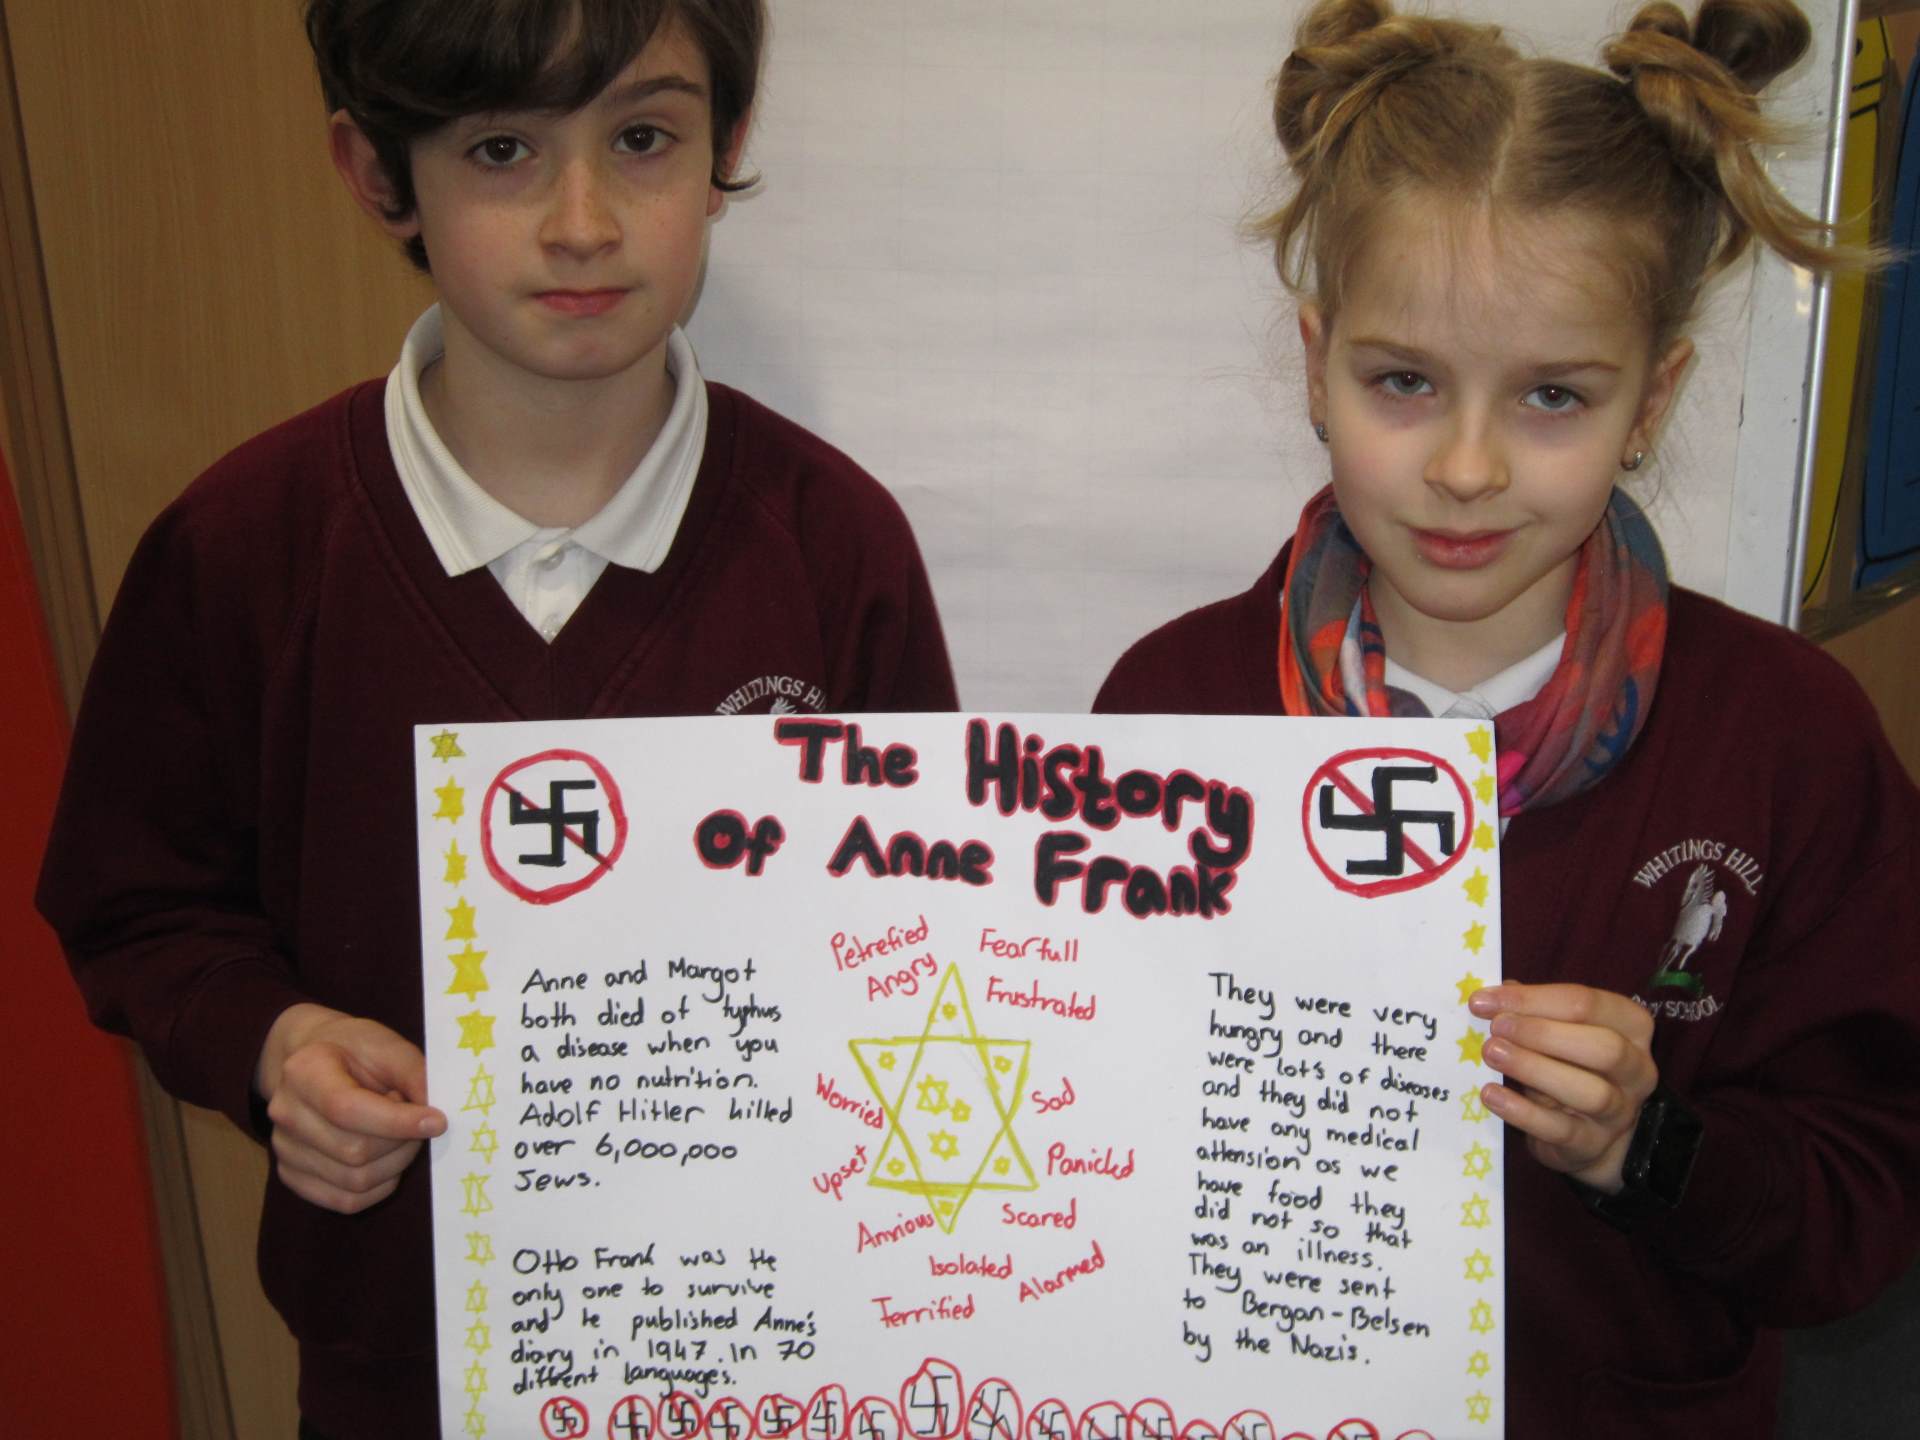 WHITINGS HI
WHITINGS HILL
SCHOOL
The History
Of Anne Frank
Petrefied
Angry
Fearfull
Frustrated
Worried
Sad
Upset
Panicked
Anxious
Scared
Isolated
Alarmed
Terrified
Anne and Margot
both died of typhus
a disease when you
have no nutrition.
Adolf Hitler killed
over 6,000,000
Jews.
Otto Frank was the
only one to survive
and he published Anne's
diary in 1947. In 70
different languages.
They were very
hungry and there
were lot's of diseases
and they did not
have any medical
attension as we
have food they
did not so that
was an illness.
They were sent
to Bergan-Belsen
by the Nazis.